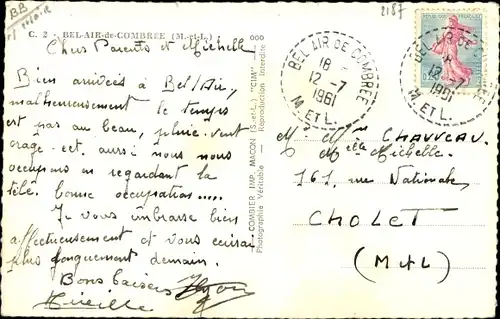 BB
2187
C. 2 - BEL-AIR-de-COMBRÉE (M.-et-L.)
000
Chers Parents et Michelle
Bien arrivées à Bel Air,
malheureusement le temps
est pas au beau, pluie, vent
orage etc, aussi nous nous
occupons en regardant la
télé. bonne occupation.....
Je vous embrasse bien
affectueusement et vous écrirai
plus longuement demain.
Bons baisers
Mireille
COMBIER IMP. MACON (S.-et-L.) "CIM"
Photographie Véritable - Reproduction Interdite
BEL AIR DE COMBREE
18
12-7
1961
M. ET L.
BEL AIR DE
12-7
1961
M. ET L.
Mr Mme CHAUVEAU
Michelle.
161, rue Nationale
CHOLET
(M & L)